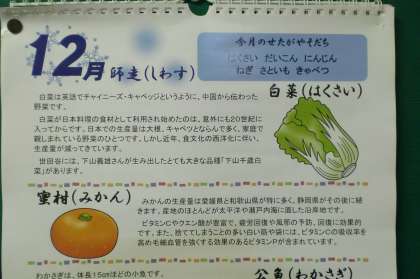 12月 師走(しわす)
今月のせたがやそだち
はくさい だいこん にんじん
ねぎ さといも きゃべつ
白菜(はくさい)
白菜は英語でチャイニーズ・キャベッジというように、中国から伝わった
野菜です。
白菜が日本料理の食材として利用され始めたのは、意外にも20世紀に
入ってからです。日本での生産量は大根、キャベツとならんで多く、家庭で
親しまれている野菜のひとつです。しかし近年、食文化の西洋化に伴い、
生産量が減ってきています。
世田谷には、下山義雄さんが生み出したとても大きな品種「下山千歳白
菜」があります。
蜜柑(みかん)
みかんの生産量は愛媛県と和歌山県が特に多く、静岡県がその後に続
きます。産地のほとんどが太平洋や瀬戸内海に面した沿岸地です。
ビタミンCやクエン酸が豊富で、疲労回復や風邪の予防、回復に効果的
です。また、捨ててしまうことの多い白い筋や袋には、ビタミンCの吸収率を
高めも細血管を強くする効果のあるビタミンPが含まれています。
公魚(わかさぎ)
わかさぎは、体長15cmほどの小魚です。